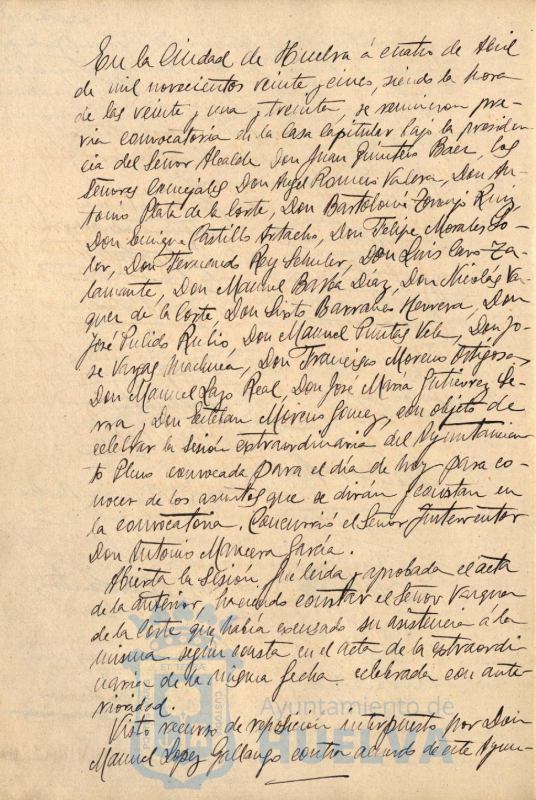 En la Ciudad de Huelva á cuatro de Abril
de mil novecientos veinte y cinco, siendo la hora
de las veinte y una y treinta, se reunieron pre-
via convocatoria en la Casa Capitular bajo la presiden
cia del Señor Alcalde Don Juan Quintero Báez, los
Señores Concejales Don Angel Romero Valera, Don An-
tonio Plata de la Corte, Don Bartolomé Naranjo Ruiz,
Don Enrique Castillo Artacho, Don Felipe Morales So-
ler, Don Fernando Rey Schuler, Don Luis Caro Za-
lamante, Don Manuel Barba Díaz, Don Nicolás Vaz-
quez de la Corte, Don Sixto Barranco Herrera, Don
José Pulido Rubio, Don Manuel Puntas Vela, Don Jo-
se Vargas Machuca, Don Francisco Moreno Ortigosa,
Don Manuel Lazo Real, Don José María Gutiérrez Se-
rra, Don Esteban Moreno Gomez, con objeto de
celebrar la sesión extraordinaria del Ayuntamien
to Pleno convocada para el día de hoy para co-
nocer de los asuntos que se dirán y constan en
la convocatoria. Concurrió el Señor Interventor
Don Antonio Mancera García.
Abierta la Sesión, fué leida y aprobada el acta
de la anterior, haciendo constar el Señor Vazquez
de la Corte que había excusado su asistencia á la
misma según consta en el acta de la extraordi
naria de la misma fecha celebrada con ante-
rioridad.
Visto recurso de reposición interpuesto por Don
Manuel Lopez Gallango contra acuerdo de este Ayun-
Ayuntamiento de
HUELVA